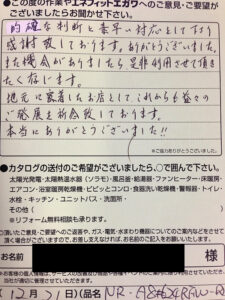 ●この度の作業やエネフィットエガワへのご意見・ご要望が
ございましたらお聞かせ下さい。
的確な判断と素早い対応をして下さり
感謝致しております。ありがとうございました。
また機会がありましたら是非利用させて頂き
たく存じます。
地元に密着したお店として、これからも益々の
ご発展を祈念致しております。
本当にありがとうございました!!
※ご協力ありがとうございました。
●カタログの送付のご希望がございましたら、○で囲んで下さい。
太陽光発電・太陽熱温水器(ソラモ)・風呂釜・給湯器・ファンヒーター・床暖房・
エアコン・浴室暖房乾燥機・ピピッとコンロ・食器洗い乾燥機・警報器・トイレ・
水栓・キッチン・ユニットバス・洗面所・
その他(
※リフォーム無料相談も承ります。
○頂いたご意見・ご要望へのご返答や、ガス・電気・水まわり機器についてのご案内などをさせて
頂く場合がございますので、お差し支えなければ、お名前のご記入をお願いいたします。
お名前
様
(12月21日)(品名